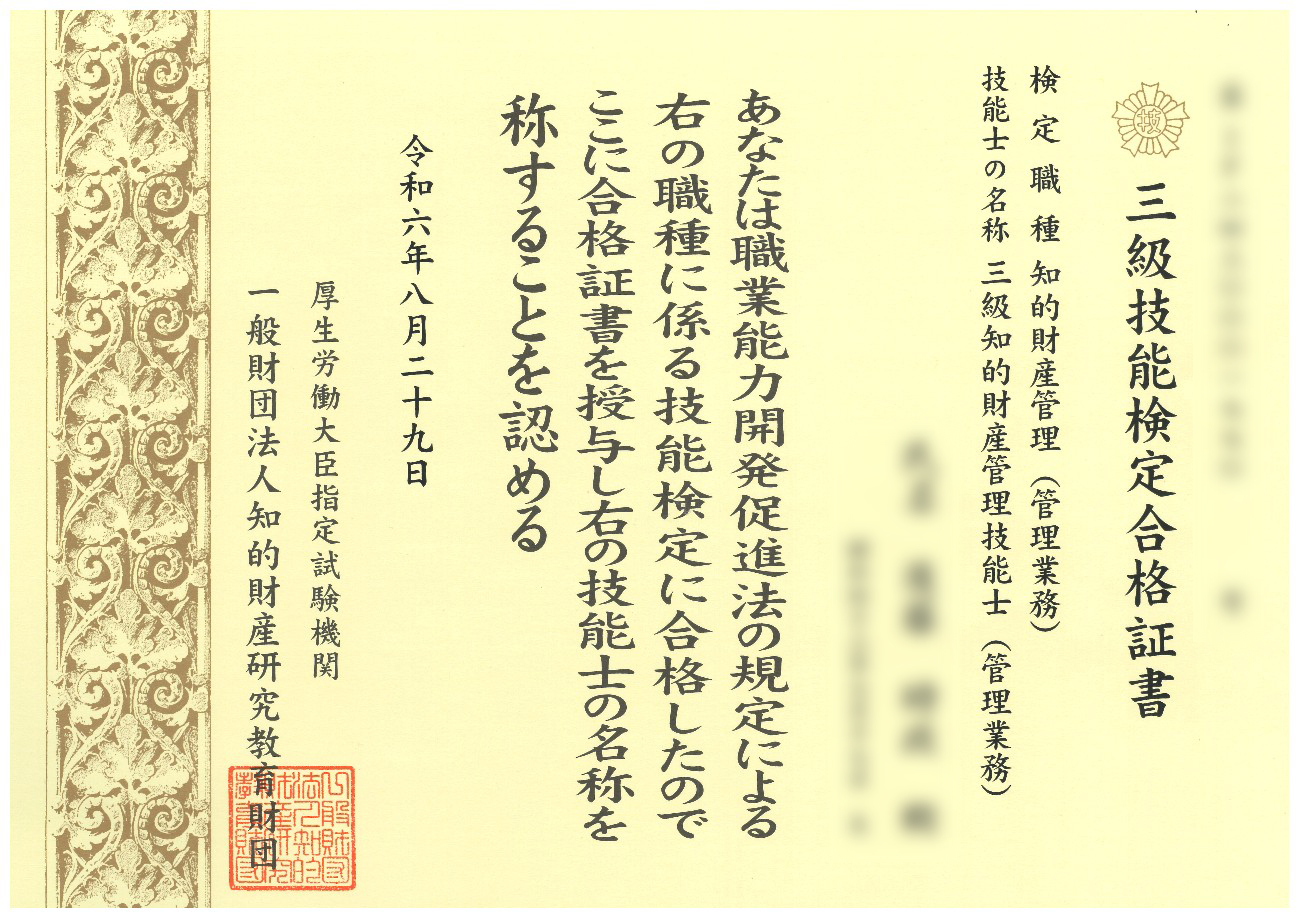 技
三級技能検定合格証書
検定職種 知的財産管理(管理業務)
技能士の名称 三級知的財産管理技能士(管理業務)
あなたは職業能力開発促進法の規定による
右の職種に係る技能検定に合格したので
ここに合格証書を授与し右の技能士の名称を
称することを認める
令和六年八月二十九日
厚生労働大臣指定試験機関
一般財団法人知的財産研究教育財団